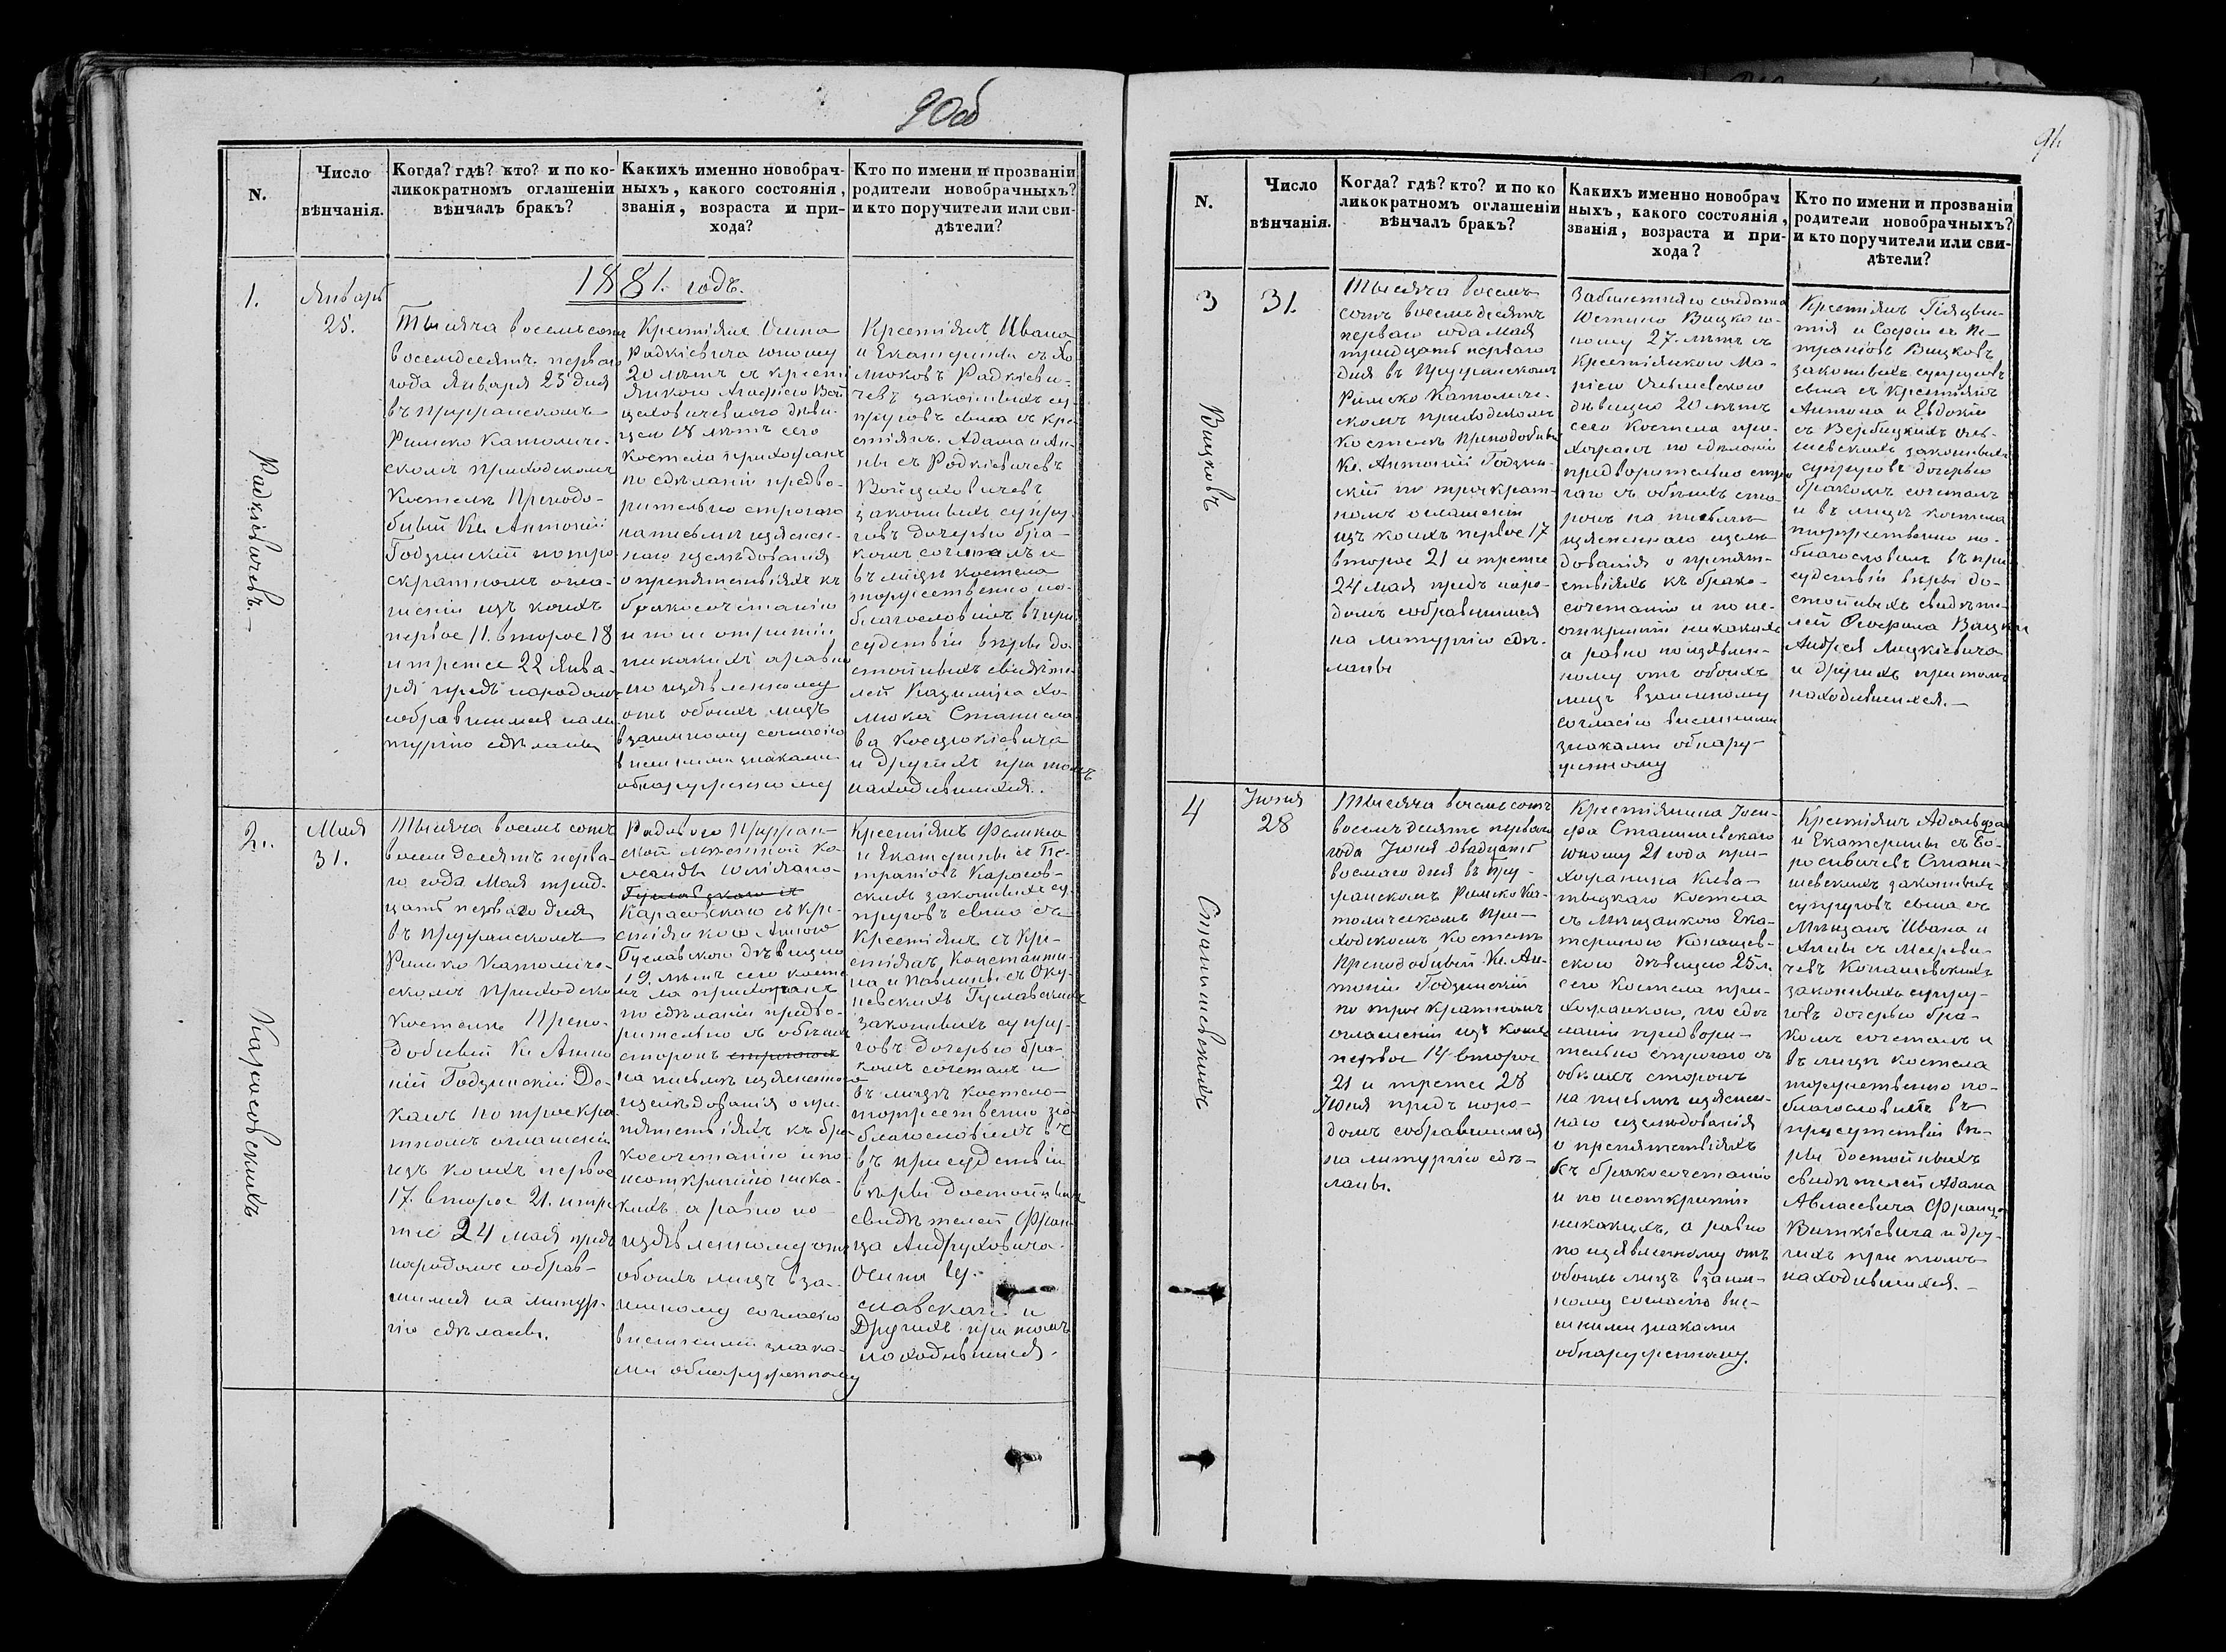 90об
N.
Число
вѣнчанія.
Когда? гдѣ? кто? и по ко-
ликократномъ оглашеніи
вѣнчалъ бракъ?
Какихъ именно новобрач-
ныхъ, какого состоянія,
званія, возраста и при-
хода?
Кто по имени и прозваніи
родители новобрачныхъ?
и кто поручители или сви-
дѣтели?
1881. годъ.
1.
Январь
25.
Радкѣвичевъ.
Тысяча восемьсотъ
восемдесятъ перваго
года Января 25 дня
въ Пружанскомъ
Римско Католиче-
скомъ приходскомъ
Костелѣ Преподо-
бный Кс. Антоній
Годзинскій по тро-
екратномъ огла-
шеніи изъ коихъ
первое 11. второе 18
и третее 22 Янва-
ря предъ народомъ
собравшимся на ли-
тургію сдѣланы
Крестьянъ Осипа
Радкѣвича юному
20 лѣтъ съ крестьь
янкою
дѣви-
цею 18 лѣтъ сего
Костела прихожанъ
по сдѣланіи предва-
рительно строгаго
на письмѣ изъяснен-
наго изслѣдованія
о препятствіяхъ къ
бракосочетанію
и по не открытіи
никакихъ а равно
по изъявленному
отъ обоихъ лицъ
взаимному согласію
внешними знаками
обнаруженному
Крестьянъ Ивана
и Екатерины съ Хо-
мюковъ Радкѣви-
чевъ законныхъ су-
пруговъ сына съ кре-
стьянъ Адама и Ан-
ны съ Радкѣвичевъ
Войцеховичевъ
законныхъ супру-
говъ дочерью бра-
комъ сочеталъ и
въ лицѣ костела
торжественно по-
благословилъ въ при-
судствіи вѣры до-
стойныхъ свидѣте-
лей Казиміра Хо-
мюка Станисла-
ва Косцюкѣвича
и другихъ при томъ
находившихся.
2.
Мая
31.
Карасовскихъ
Тысяча восемьсотъ
восемдесятъ перва-
го года Мая трид-
цать перваго дня
въ Пружанскомъ
Римско Католиче-
скомъ Приходско
Костелѣ Препо-
добный Кс Анто
ній Годзинскій Де-
канъ по троекра-
тномъ оглашеніи
изъ коихъ первое
17. второе 21. и тре
тее 24 мая предъ
народомъ собрав-
шимся на литур-
гію сдѣланы.
Радоваго Пружан-
ской мѣстной ко-
манды Юліана
Карасовскаго съ кре-
стьянкою Анною
Гуславскою дѣвицею
19. лѣтъ сего косте
ла прихожанъ
по сдѣланіи предва-
рительно съ обѣихъ
сторонъ
на письмѣ изъясненнаго
изслѣдованія о пре-
пятствіяхъ къ бра-
косочетанію и по
неоткрытію ника-
кихъ а равно по
изъявленному отъ
обоихъ лицъ вза-
имному согласію
внешними знака-
ми обнаруженному
Крестьянъ Феликса
и Екатерины съ Пе-
траговъ Карасов-
скихъ законныхъ су-
пруговъ сына съ
Крестьянъ съ Кре-
стьянъ Константи-
на и Павлины съ Оку-
невскихъ Гуславскихъ
законныхъ супру-
говъ дочерью бра-
комъ сочеталъ и
въ лицѣ костела
торжественно по-
благословилъ въ
въ присудствіи
вѣры достойныхъ
свидѣтелей Фран-
ца Андруховича
Осипа Гу-
славскаго и
Другихъ при томъ
находившихся.
91.
N.
Число
вѣнчанія.
Когда? гдѣ? кто? и по ко
ликократномъ оглашеніи
вѣнчалъ бракъ?
Какихъ именно новобрач
ныхъ, какого состоянія,
званія, возраста и при-
хода?
Кто по имени и прозваніи
родители новобрачныхъ?
и кто поручители или сви-
дѣтели?
3
31.
Вицковъ
Тысяча восемь
сотъ восемьдесятъ
перваго года мая
тридцать перваго
дня въ Пружанскомъ
Римско Католиче-
скомъ приходскомъ
Костелѣ Преподобный
Кс. Антоній Годзин-
скій по троекрат-
номъ оглашеніи
изъ коихъ первое 17
второе 21 и третее
24 мая предъ наро-
домъ собравшимся
на литургію сдѣ-
ланы
солдата
Вицка ю-
ному 27. лѣтъ съ
Крестьянкою Ма-
ріею Ольшевскою
дѣвицею 20 лѣтъ
сего Костела при-
хожанъ по сдѣланіи
предварительно строг
гаго съ обѣихъ сто-
ронъ на письмѣ
изъясненнаго изслѣ-
дованія о препят-
ствіяхъ къ брако-
сочетанію и по не-
открытіи никакихъ
а равно по изъявлен-
ному отъ обоихъ
лицъ взаимному
согласію внешними
знаками обнару-
женному
Крестьянъ Гіяцын-
тія и Софіи съ Пе-
траговъ Вицковъ
законныхъ супруговъ
сына съ Крестьянъ
Антона и Евдокіи
съ Вербицкихъ Оль-
шевскихъ законныхъ
супруговъ дочерью
бракомъ сочеталъ
и въ лицѣ костела
торжественно по-
благословилъ въ при
судствіи вѣры до-
стойныхъ свидѣте-
лей Онуфрія Вицки
Андрея Мицкѣвича
и другихъ при томъ
находившихся.
4
Іюня
28
Станишевскихъ
Тысяча восемьсотъ
восемьдесятъ перваго
года Іюня двадцать
восмаго дня въ Пру-
жанскомъ Римско Ка-
толическомъ При-
ходскомъ Костелѣ
Преподобный Кс. Ан-
тоній Годзинскій
по троекратномъ
оглашеніи изъ коихъ
первое 14 второе
21 и третее 28
Іюня предъ наро-
домъ собравшимся
на литургію сдѣ-
ланы.
Крестьянина Іоси-
фа Станишевскаго
юному 21 года при-
хожанина Кива-
тыцкаго Костела
съ Мѣщанкою Ека-
териною Конашев-
скою дѣвицею 25 л.
сего Костела при-
хожанкою, по сдѣ-
ланіи предвари-
тельно строгаго съ
обѣихъ сторонъ
на письмѣ изъяснен-
наго изслѣдованія
о препятствіяхъ
къ бракосочетанію
и по неоткрытіи
никакихъ, а равно
по изъявленному отъ
обоихъ лицъ взаим-
ному согласію вне-
шними знаками
обнаруженному.
Крестьянъ Адольфа
и Екатерины съ Бо-
росевичевъ Стани-
шевскихъ законныхъ
супруговъ сына съ
Мѣщанъ Ивана и
Анны съ
Конашевскихъ
законныхъ супру-
говъ дочерью бра-
комъ сочеталъ и
въ лицѣ костела
торжественно по-
благословилъ въ
присутствіи вѣ-
ры достойныхъ
свидѣтелей Адама
Авласевича Франца
Виткѣвича и дру-
гихъ при томъ
находившихся.